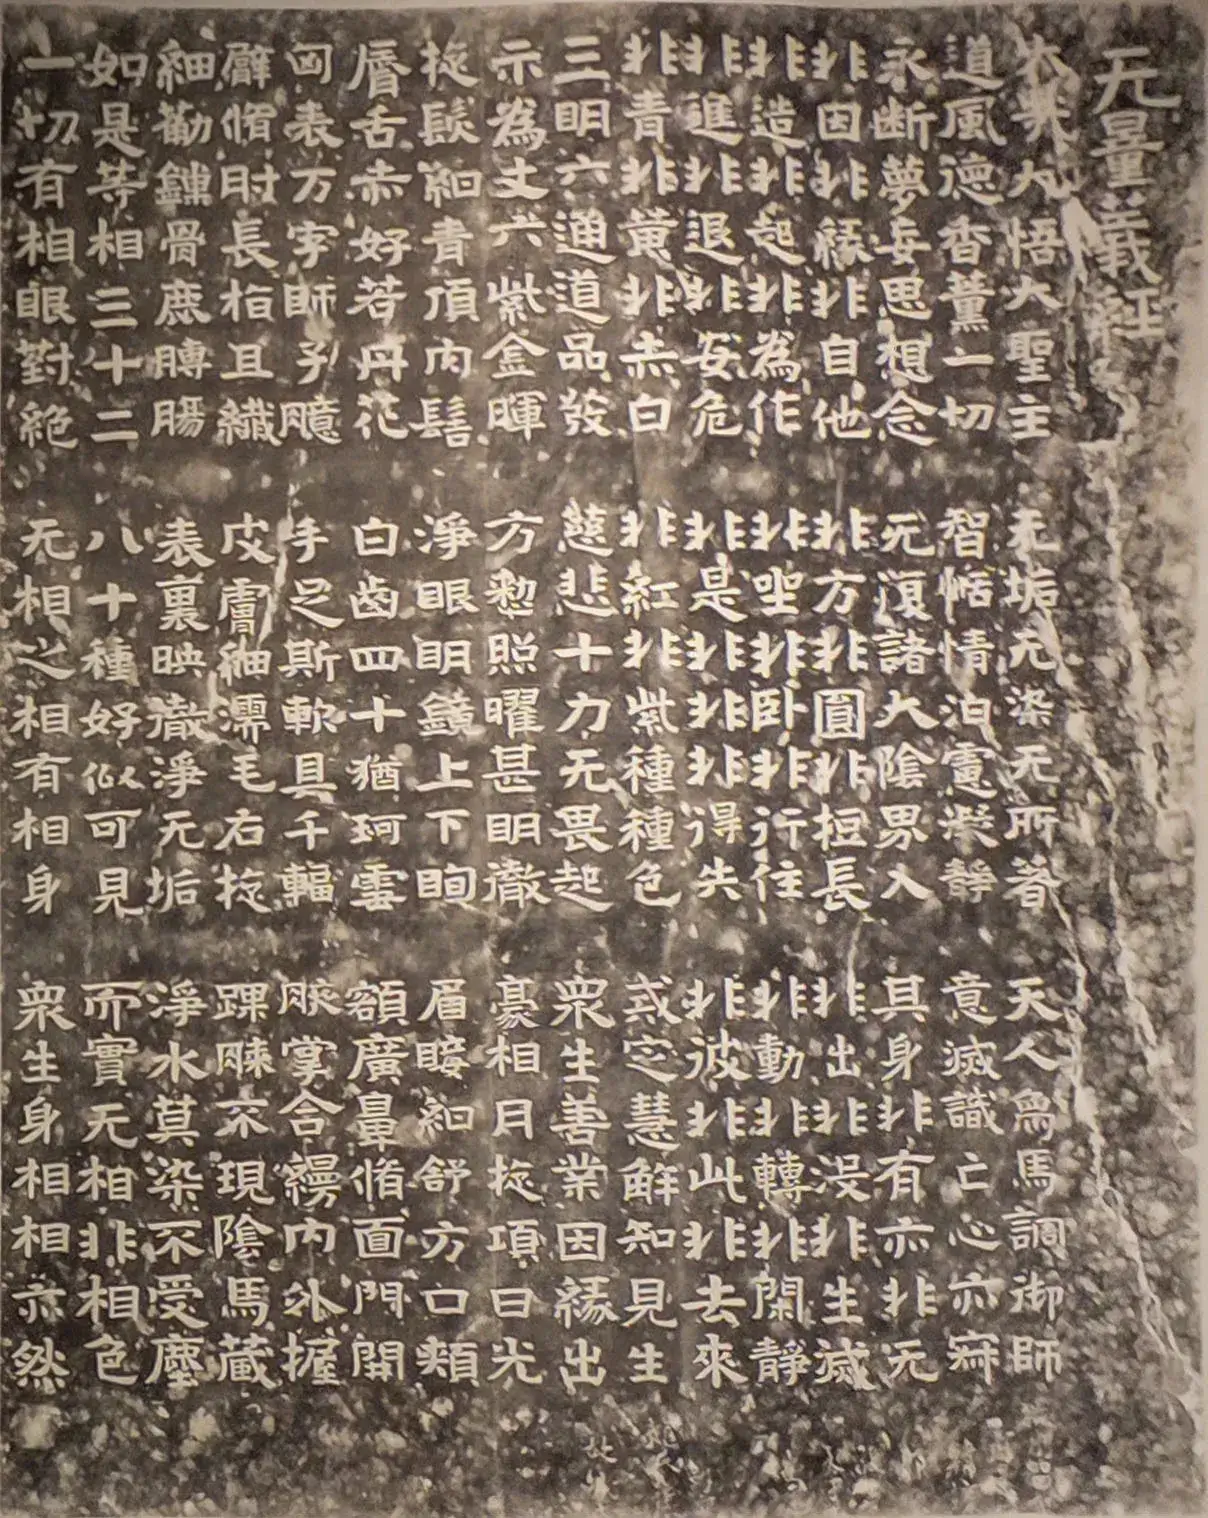 无量義經
大哉大悟大聖主 无垢无染无所著 天人象馬調御師
道風德香薰一切 智恬情泊慮凝靜 意滅識亡心亦寂
永断夢妄思想念 无復諸大陰界入 其身非有亦非无
非因非緣非自他 非方非圓非短長 非出非没非生滅
非造非起非為作 非坐非卧非行住 非動非轉非閑靜
非進非退非安危 非是非非非得失 非彼非此非去來
非青非黄非赤白 非紅非紫種種色 戒定慧解知見生
三明六通道品發 慈悲十力无畏起 衆生善業因緣出
示為丈六紫金暉 方整照曜甚明徹 豪相月旋項日光
旋髮紺青頂肉髻 淨眼明鏡上下眴 眉睫紺舒方口頰
脣舌赤好若丹花 白齒四十猶珂雪 額廣鼻脩面門開
匈表万字師子臆 手足斯軟具千輻 腋掌合縵內外握
臂脩肘長指且纖 皮膚細濡毛右旋 踝膝不現陰馬藏
細筋鏁骨鹿膊腸 表裏映徹淨无垢 淨水莫染不受塵
如是等相三十二 八十種好似可見 而實无相非相色
一切有相眼對絕 无相之相有相身 衆生身相相亦然